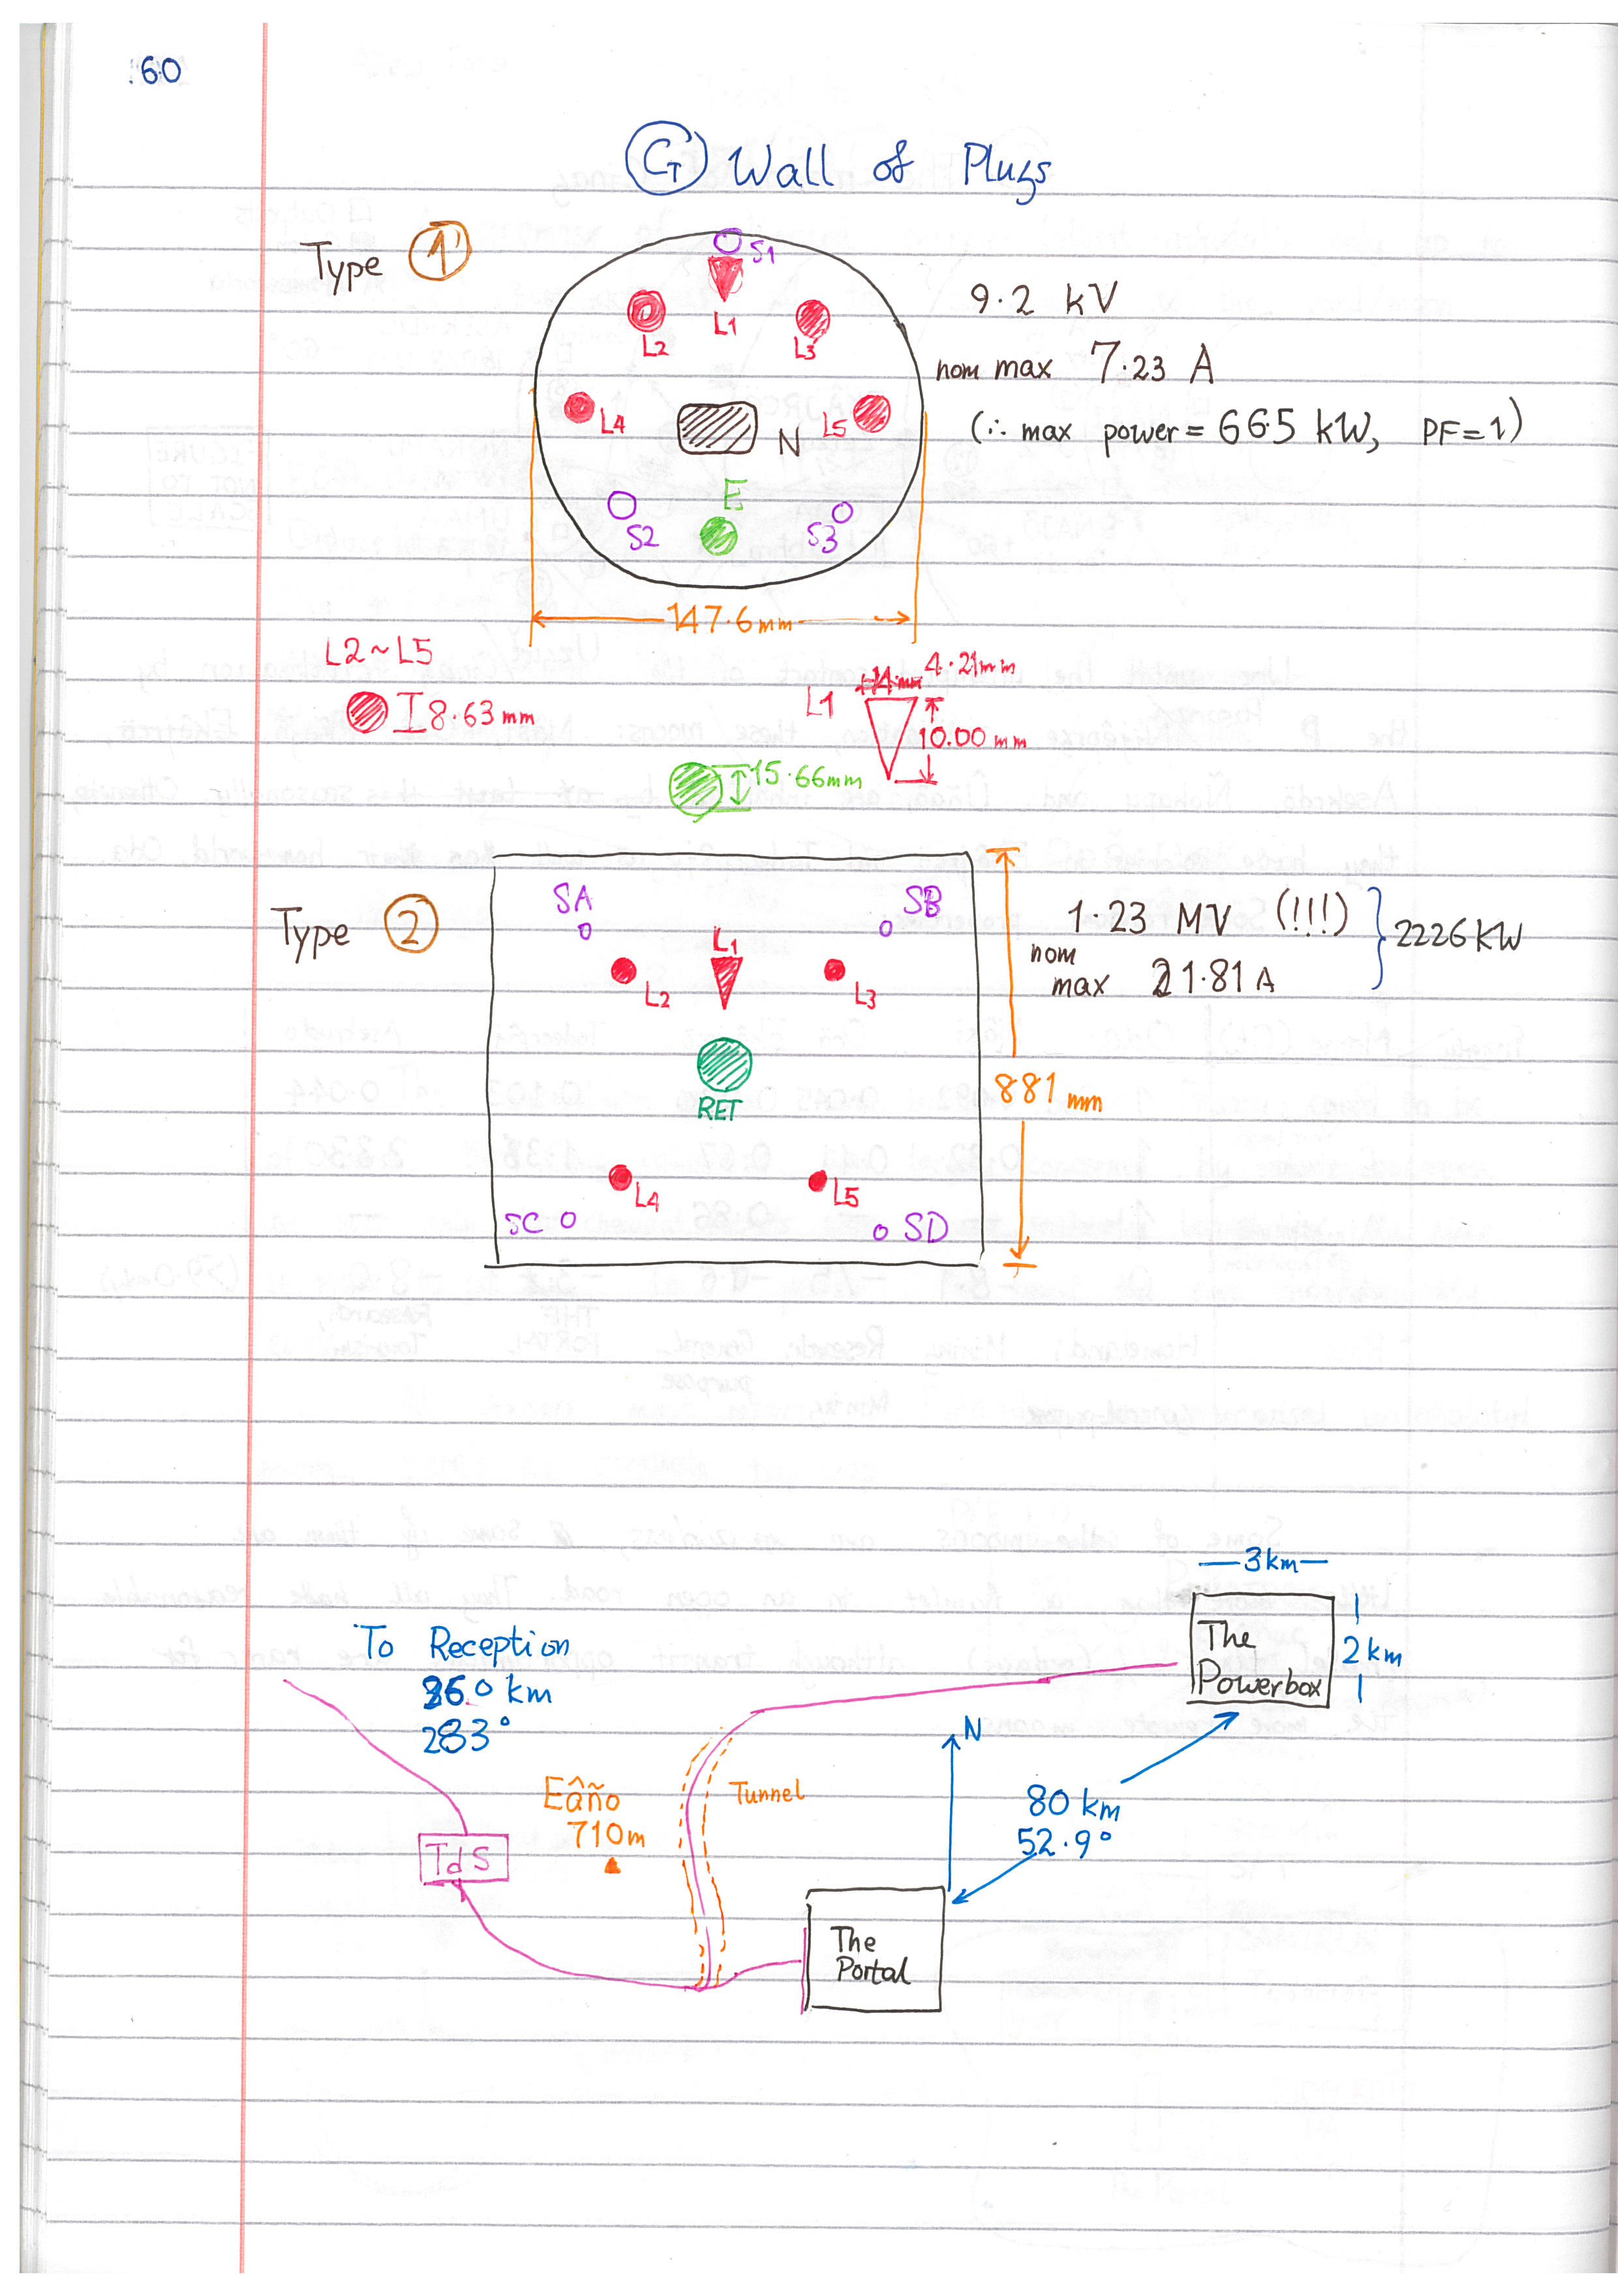 :60
G Wall of Plugs
Type 1
S1
L1
L2
L3
L4
N
L5
E
S2
S3
9.2 kV
nom max 7.23 A
(∴ max power = 66.5 kW, PF=1)
147.6mm
L2~L5
8.63 mm
L1
4.21mm
10.00 mm
15.66mm
Type 2
SA
SB
L1
L2
L3
RET
L4
L5
SC
SD
1.23 MV (!!!)
nom
max 21.81 A
2226 kW
881 mm
3km
The
Powerbox
2 km
To Reception
360 km
283°
N
Eâño
710m
Tunnel
80 km
52.9°
TdS
The
Portal